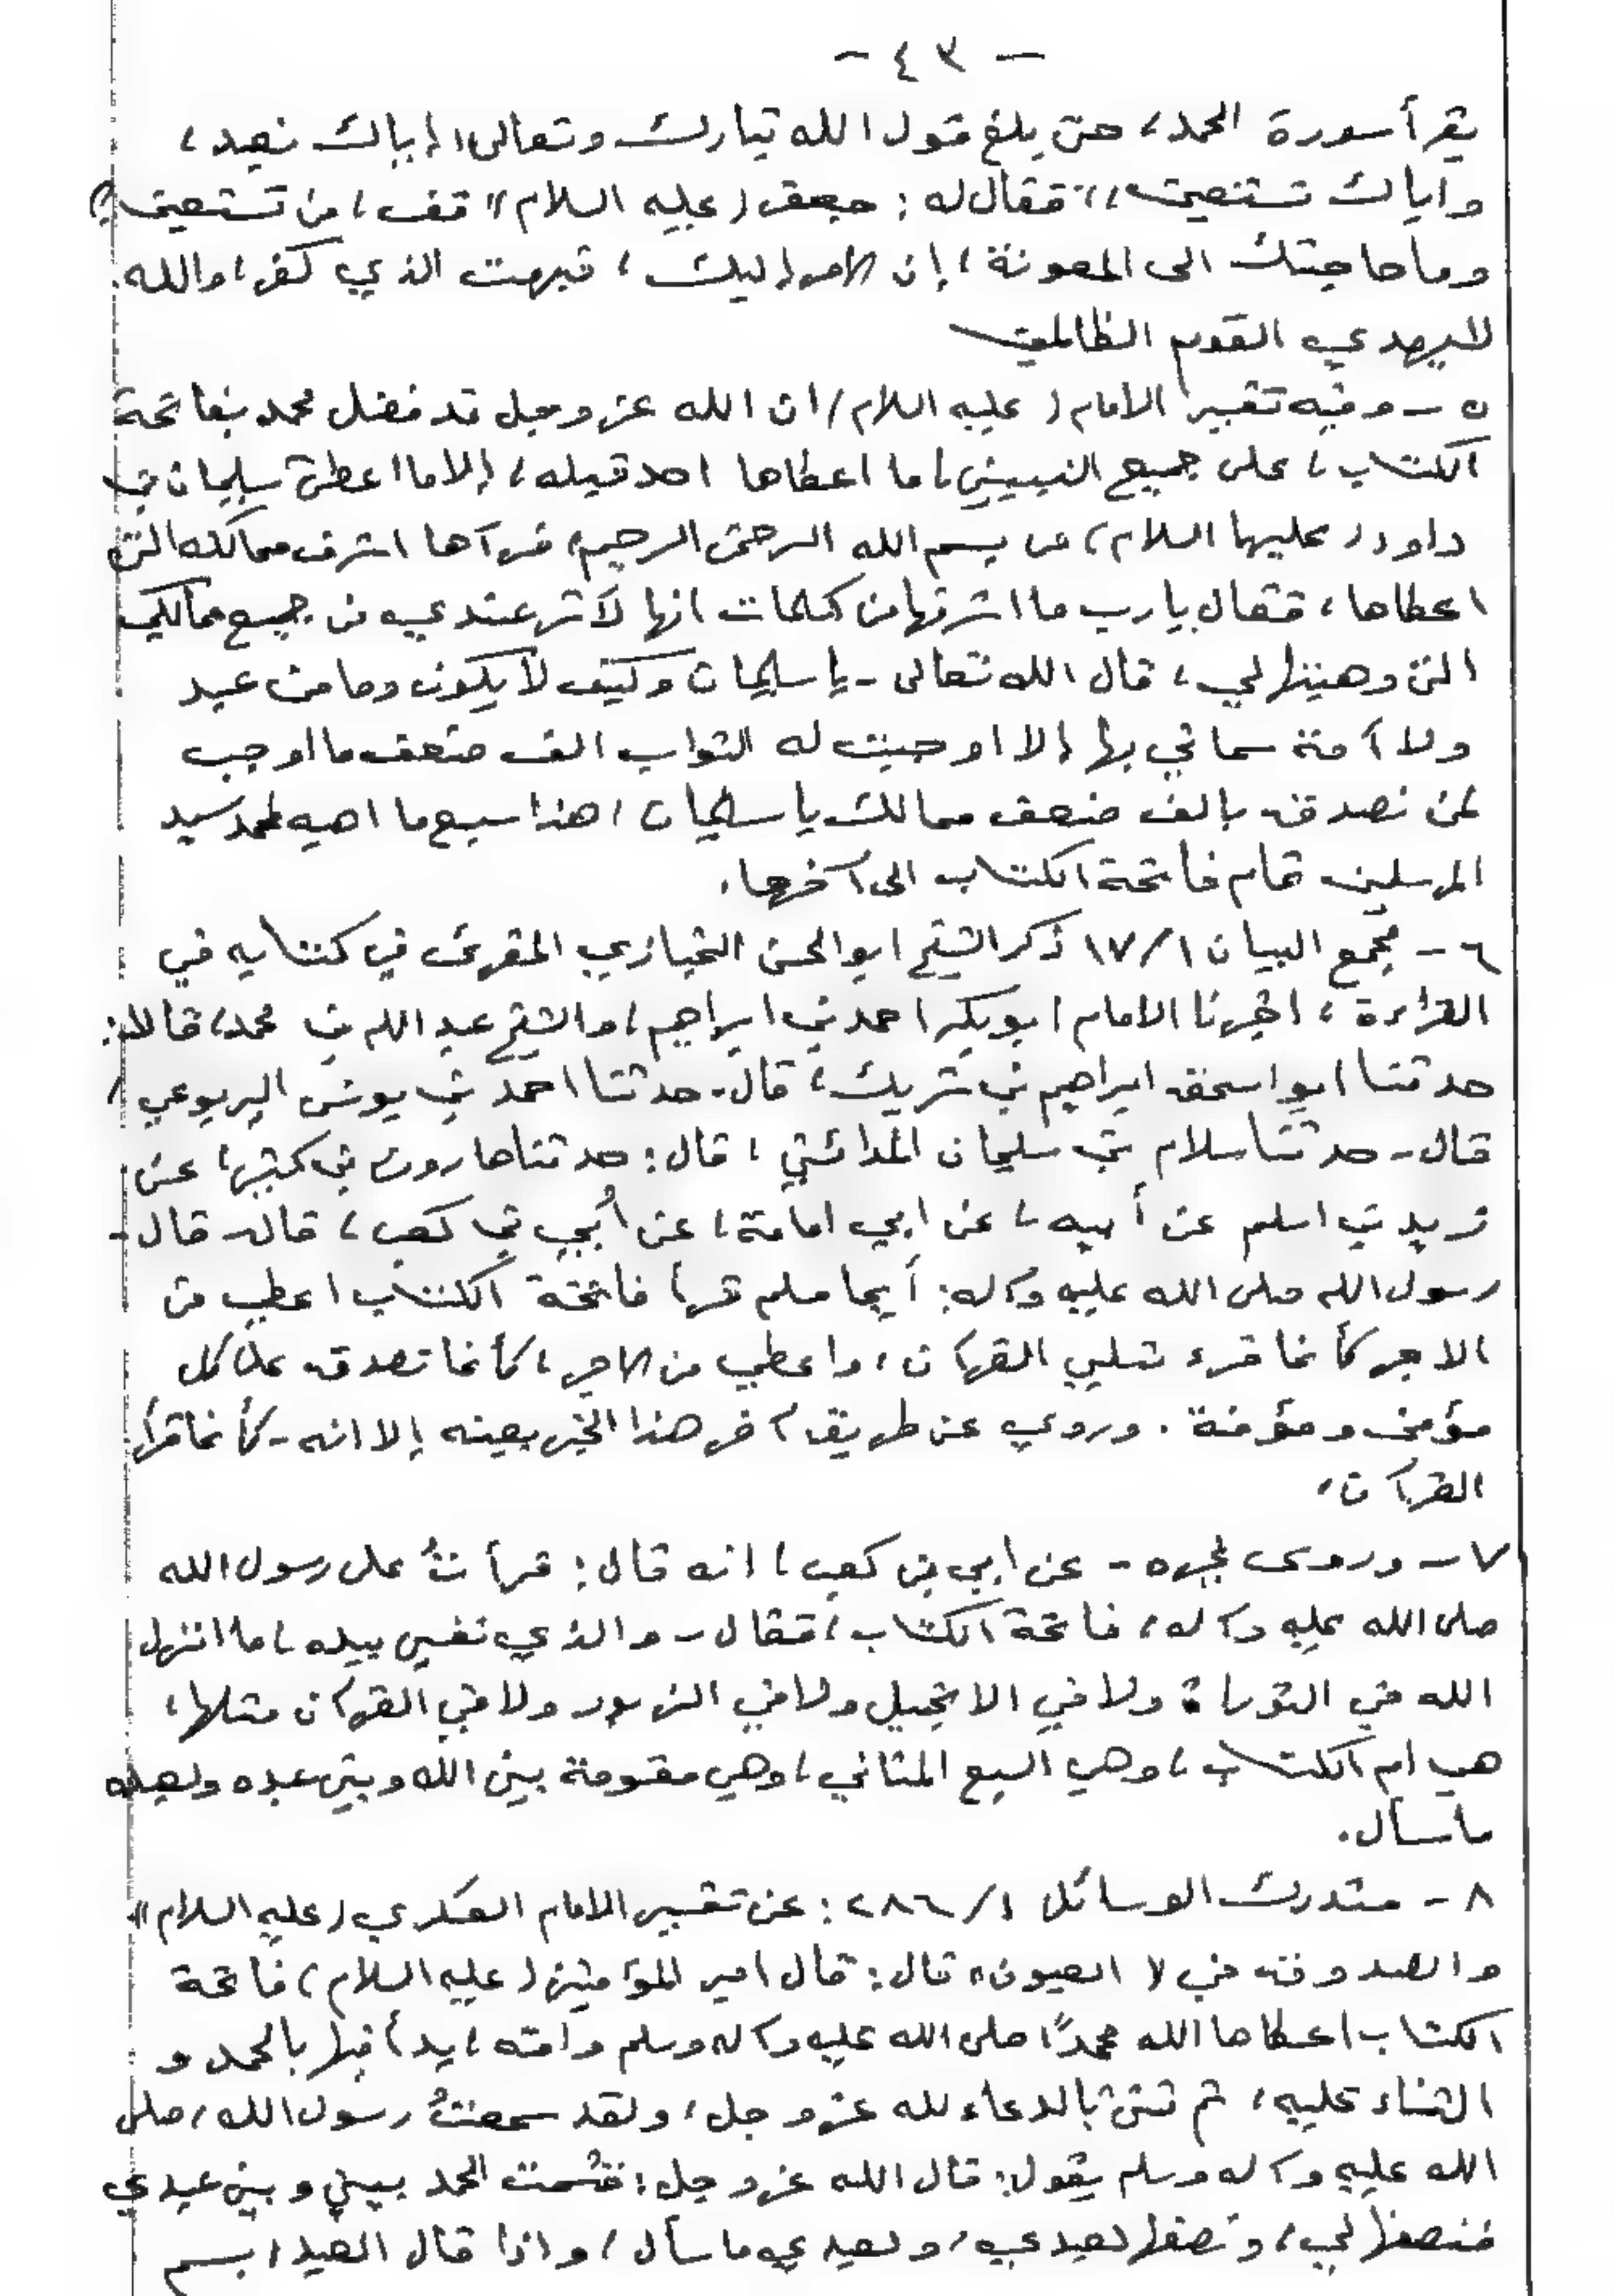 - ٤٣ -
يقرأ سورة الحمد، حتى بلغ قول الله تبارك وتعالى (إياك نعبد،
واياك نستعين)، فقال له: جعفر (عليه السلام) قف، من تستعين؟
وما حاجتك الى المعونة، إن الامر إليك، فبهت الذي كفر، والله
لا يهدي القوم الظالمين
٥ - وفيه تفسير الامام (عليه السلام) ان الله عز وجل قد فضل محمد بفاتحة
الكتاب، على جميع النبيين، ما اعطاها احد قبله، إلا ما اعطى سليمان بن
داود (عليهما السلام) من بسم الله الرحمن الرحيم، فرآها اشرف ممالكه التي
اعطاها، فقال يا رب ما اشرفها من كلمات انها لآثر عندي من جميع ممالكي
التي وهبتها لي، قال الله تعالى - يا سليمان وكيف لا يكون وما من عبد
ولا أمة سماني بها إلا اوجبت له الثواب الف ضعف ما اوجب
لمن تصدق بالف ضعف ممالك يا سليمان، هذا سبع ما اهبه لمحمد سيد
المرسلين تمام فاتحة الكتاب الى آخرها.
٦ - مجمع البيان ١/١٧ ذكر الشيخ ابو الحسن الخبازي المقرئ في كتابه في
القراءة، اخبرنا الامام ابو بكر احمد بن ابراهيم، والشيخ عبد الله بن محمد، قالا:
حدثنا ابو اسحق ابراهيم بن شريك، قال - حدثنا احمد بن يونس اليربوعي،
قال - حدثنا سلام بن سليمان المدائني، قال: حدثنا هارون بن كثير، عن
زيد بن اسلم عن أبيه، عن ابي امامة، عن أُبي بن كعب، قال قال -
رسول الله صلى الله عليه وآله: أيما مسلم قرأ فاتحة الكتاب اعطي من
الاجر كأنما قرء ثلثي القرآن، واعطي من الاجر، كأنما تصدق على كل
مؤمن ومؤمنة. وروي عن طريق آخر هذا الخبر بعينه إلا انه - كأنما قرأ
القرآن،
٧ - وروى غيره - عن ابي بن كعب، انه قال: قرأتُ على رسول الله
صلى الله عليه وآله، فاتحة الكتاب، فقال - والذي نفسي بيده، ما انزل
الله في التوراة ولا في الانجيل ولا في الزبور ولا في القرآن مثلها،
هي ام الكتاب، وهي السبع المثاني، وهي مقسومة بين الله وبين عبده ولعبده
ما سأل.
٨ - مستدرك الوسائل ١/٢٨٦: عن تفسير الامام العسكري (عليه السلام)
والصدوق في (العيون) قال: قال امير المؤمنين (عليه السلام) فاتحة
الكتاب اعطاها الله محمدًا صلى الله عليه وآله وسلم وامته، بدأ فيها بالحمد و
الثناء عليه، ثم ثنى بالدعاء لله عز وجل، ولقد سمعتُ رسول الله، صلى
الله عليه وآله وسلم يقول: قال الله عز وجل: قسمت الحمد بيني وبين عبدي
فنصفها لي، ونصفها لعبدي، ولعبدي ما سأل، واذا قال العبد، بسم